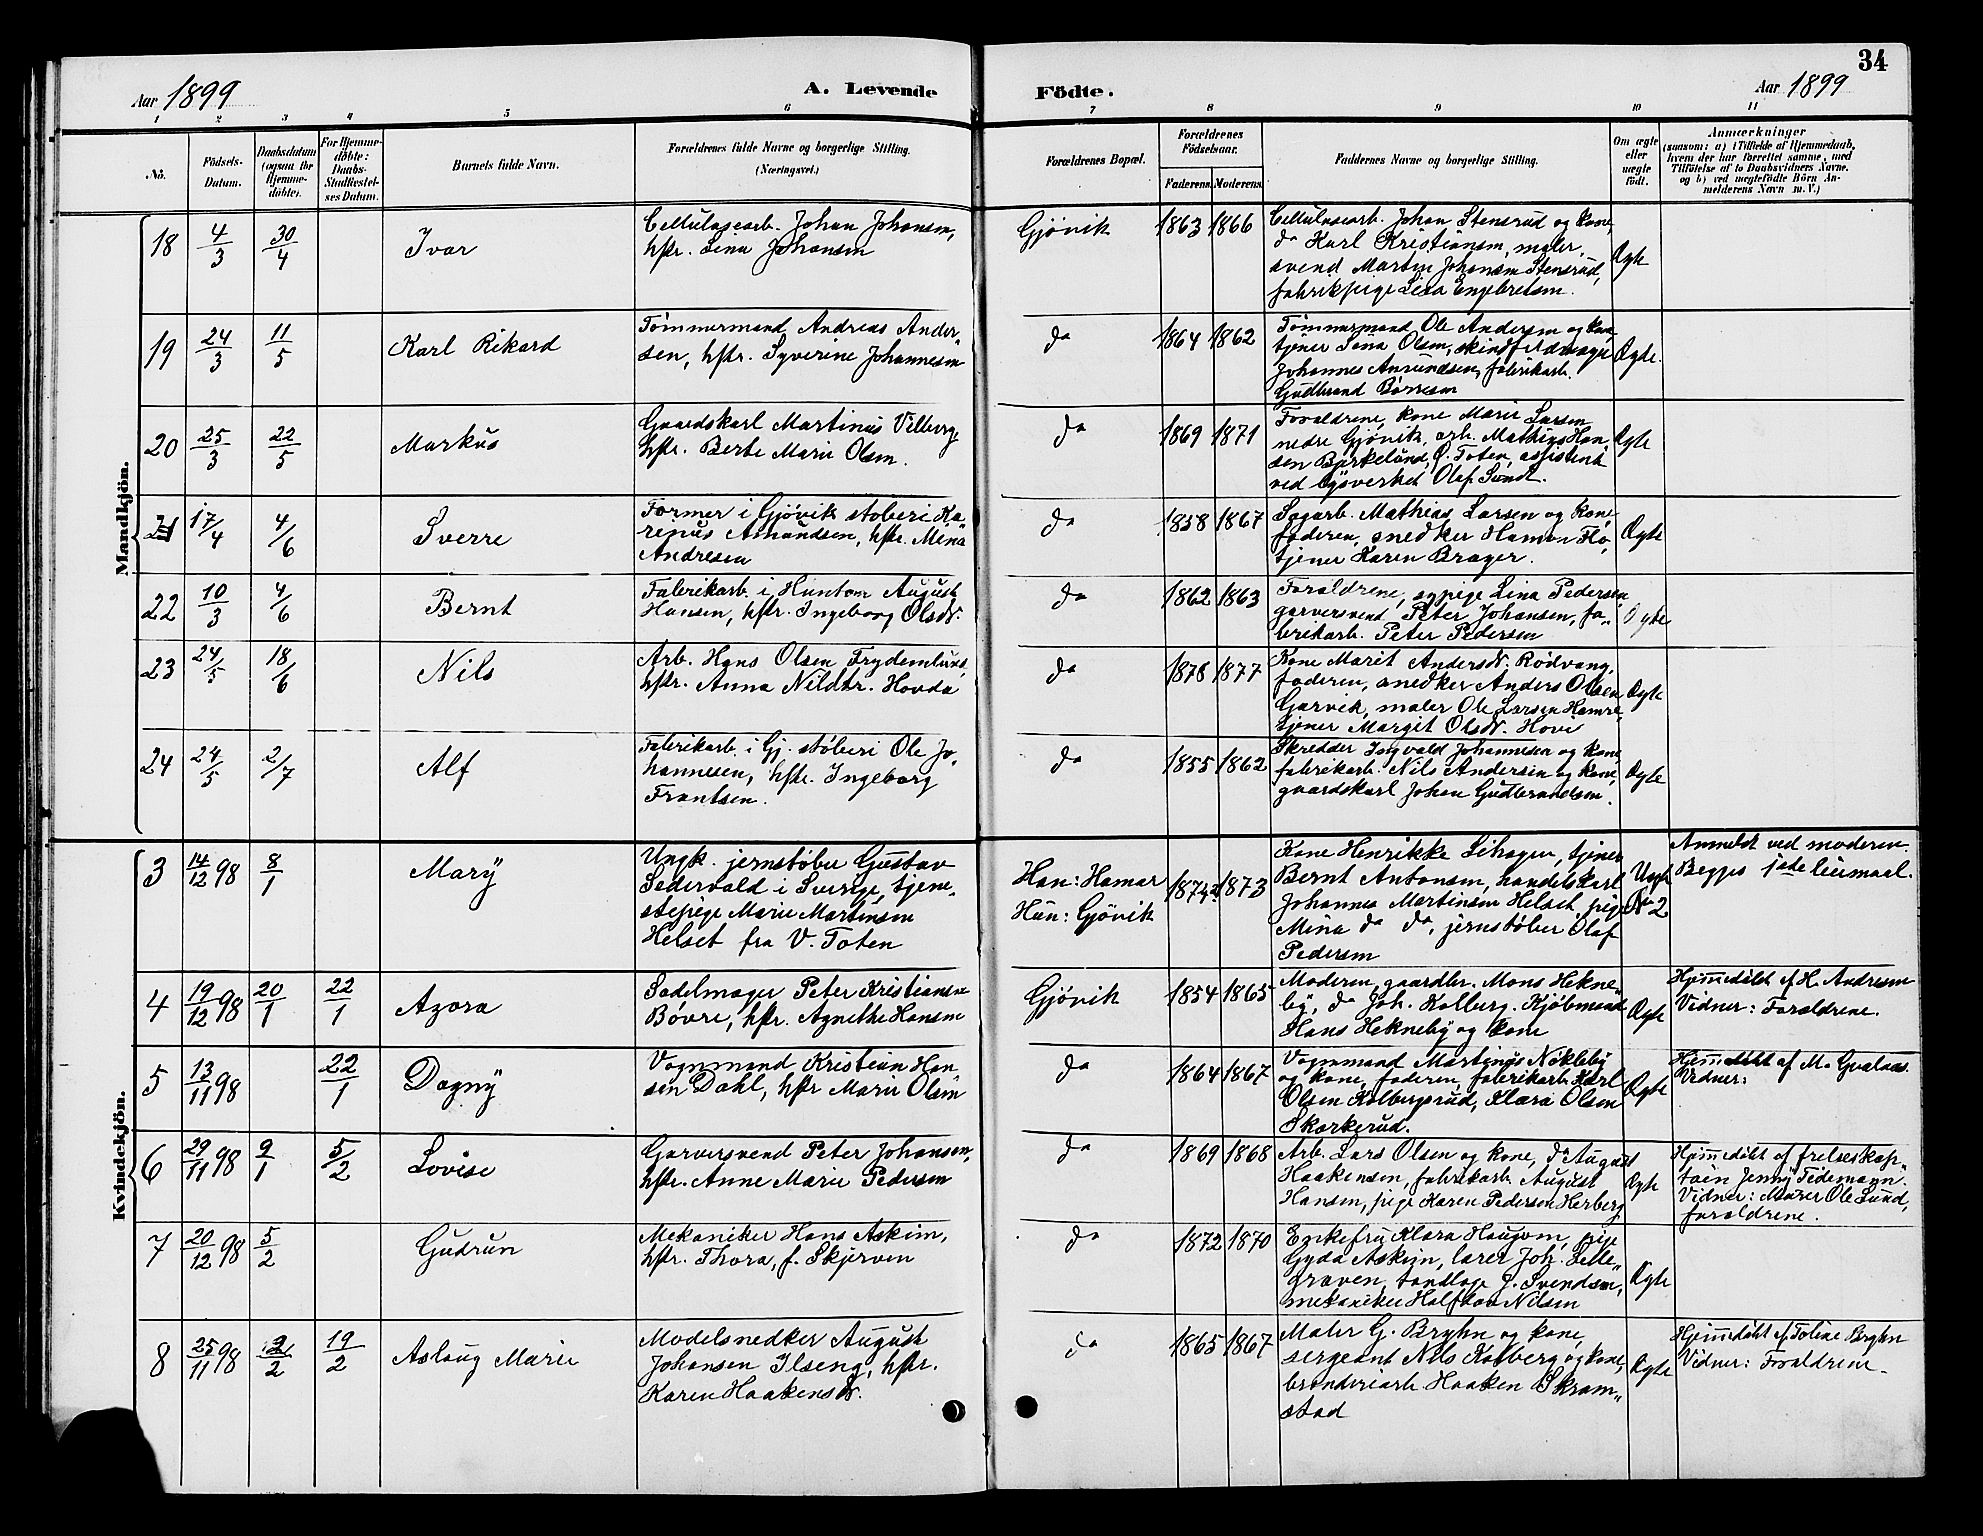 34
Aar 1899
A. Levende
Födte.
Aar 1899
1 2 3 4 5 6 7 8 9 10 11
No.
Födsels-
Datum.
Daabsdatum
(ogsaa for
Hjemme-
döbte).
For Hjemme-
döbte:
Daabs-
Stadfæstel-
ses Datum.
Barnets fulde Navn.
Forældrenes fulde Navne og borgerlige Stilling.
(Næringsvei.)
Forældrenes Bopæl.
Forældrenes
Födselsaar.
Faderens. Moderens.
Faddernes Navne og borgerlige Stilling.
Om ægte
eller
uægte
födt.
Anmærkninger
(saasom: a) i Tilfælde af Hjemmedaab,
hvem der har forrettet samme, med
Tilföielse af to Daabsvidners Navne.
og b) ved uægtefödte Börn An-
melderens Navn m. V.)
Mandkjön.
18 4/3 30/4 Ivar
Cellulosearb. Johan Johansen,
hstr. Lina Johansen
Gjövik 1863 1866
Cellulosearb. Johan Stensrud og kone,
do Karl Kristiansen, maler,
svend Martin Johansen Stensrud,
fabrikpige Lina Engebretsen.
Ægte
19 24/3 11/5 Karl Rikard
Tömmermand Andreas Ander-
sen, hstr. Syverine Johannesen
do 1864 1862
Tömmermand Ole Andersen og kone
tjener Lina Olsen, skindfeldmager
Johannes Amundsen, fabrikarb.
Gudbrand Börresen
Ægte.
20 25/3 22/5 Markus
Gaardskarl Martinus Vilberg,
hstr. Berte Marie Olsen.
do 1869 1871
Forældrene, kone Marie Larsen
nedre Gjövik, arb. Mathias Han
sen Birkelund, Ö. Toten, assistent
ved lysverket Olaf Sund.
Ægte
21 17/4 4/6 Sverre
Former i Gjövik stöberi Ka-
rinus Amundsen, hstr. Mina
Andresen
do 1858 1867
Sagarb. Mathias Larsen og kone,
faderen, snedker Hamon Flo,
tjener Karen Brager.
Ægte
22 10/3 4/6 Bernt
Fabrikarb. i Hunton August
Hansen, hstr. Ingeborg Olsdr.
do 1862 1863
Forældrene, sypige Lina Pedersen
garversvend Peter Johansen, fa-
brikarb. Peter Pedersen
Ægte
23 24/5 18/6 Nils
Arb. Hans Olsen Frydenlund,
hstr. Anna Nilsdtr. Hovda
do 1878 1877
Kone Marit Andersdr. Rödvang,
faderen, snedker Anders Olsen
Garvik, maler Ole Larsen Hamre,
tjener Margit Olsdr. Hovi
Ægte
24 24/5 2/7 Alf
Fabrikarb. i Gj. stöberi Ole Jo-
hannesen, hstr. Ingeborg
Frantsen.
do 1855 1862
Skredder Ingvald Johannesen og kone,
fabrikarb. Nils Andersen og kone,
gaardskarl Johan Gudbrandsen.
Ægte
Kvindekjön.
3 14/12 98 8/1 Mary
Ungk. jernstöber Gustav
Södervald i Sverige, tjene-
stepige Marie Martinsen
Helset fra V. Toten
Han: Hamar
Hun: Gjövik
1874? 1873
Kone Henrikke Lihagen, tjener
Bernt Antonsen, handelskarl
Johannes Martinsen Helset, pige
Mina do do, jernstöber Olaf
Pedersen
Uægte
No 2
Anmeldt ved moderen.
Begges 1ste leiermaal.
4 19/12 98 20/1 22/1 Azora
Sadelmager Peter Kristiansen
Bövre, hstr. Agnethe Hansen
Gjövik 1854 1865
Moderen, gaardbr. Mons Hekne-
by, do Joh. Kolberg. Kjöbmand
Hans Hekneby og kone
Ægte
Hjemmedöbt af H. Andresen
Vidner: Forældrene.
5 13/11 98 22/1 Dagny
Vognmand Kristian Han
sen Dahl, hstr Marie Olsen
do 1864 1867
Vognmand Martinus Nökleby
og kone, faderen, fabrikarb. Karl
Olsen Kolbergsrud, Klara Olsen
Skarkerud.
Ægte
Hjemmedöbt af M. Gvalaas.
Vidner:
6 29/11 98 9/1 5/2 Lovise
Garversvend Peter Johansen,
hstr. Anne Marie Pedersen
do 1869 1868
Arb. Lars Olsen og kone, do August
Haakensen, fabrikarb. August
Hansen, pige Karen Pedersen Herberg
Ægte
Hjemmedöbt af frelseskap-
tein Jenny Tidemann.
Vidner: Murer Ole Lund,
forældrene.
7 20/12 98 5/2 Gudrun
Mekaniker Hans Askim,
hstr. Thora, f. Skjerven
do 1872 1870
Enkefru Klara Haugom, pige
Gyda Askim, lærer Joh. Lille-
græven, tandlæge J. Svendsen,
mekaniker Halfdan Nilsen
Ægte
8 25/11 98 2/2 19/2 Aslaug Marie
Modelsnedker August
Johansen Ilseng, hstr.
Karen Haakensdr.
do 1865 1867
Maler G. Bryhn og kone,
sergeant Nils Kolberg og kone,
brænderiarb Haaken Skram-
stad
Ægte
Hjemmedöbt af Toline Bryhn
Vidner: Forældrene.